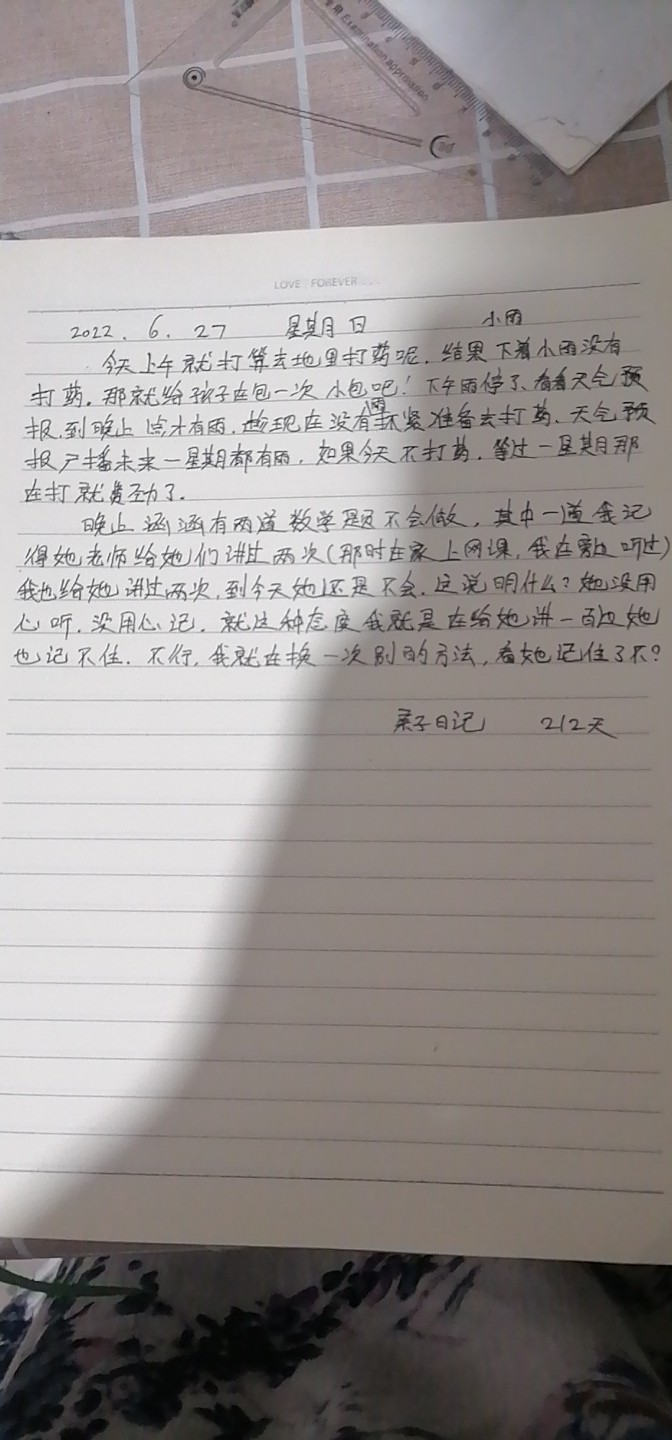 Examination approbation
LOVE FOREVER...
2022.6.27 星期日 小雨
今天上午就打算去地里打药呢.结果下着小雨没有
打药.那就给孩子在包一次小包吧!下午雨停了.看看天气预
报.到晚上 点才有雨.趁现在没有雨赶紧准备去打药.天气预
报广播未来一星期都有雨.如果今天不打药.等过一星期那
在打就费劲了.
晚上涵涵有两道数学题不会做,其中一道我记
得她老师给她们讲过两次(那时在家上网课,我在旁边听过)
我也给她讲过两次,到今天她还是不会.这说明什么?她没用
心听.没用心记.就这种态度我就是在给她讲一百边她
也记不住.不行,我就在换一次别的方法,看她记住了不?
亲子日记 212天